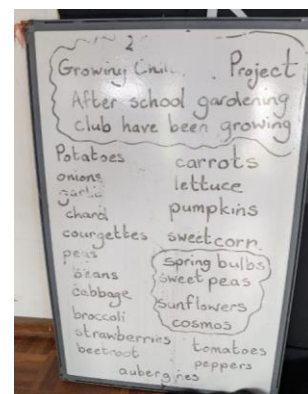 2
Growing Project
After school gardening
club have been growing
Potatoes
onions
garlic
chard
courgettes
peas
beans
cabbage
broccoli
strawberries
beetroot
aubergines
carrots
lettuce
pumpkins
sweetcorn
spring bulbs
sweet peas
sunflowers
cosmos
tomatoes
peppers